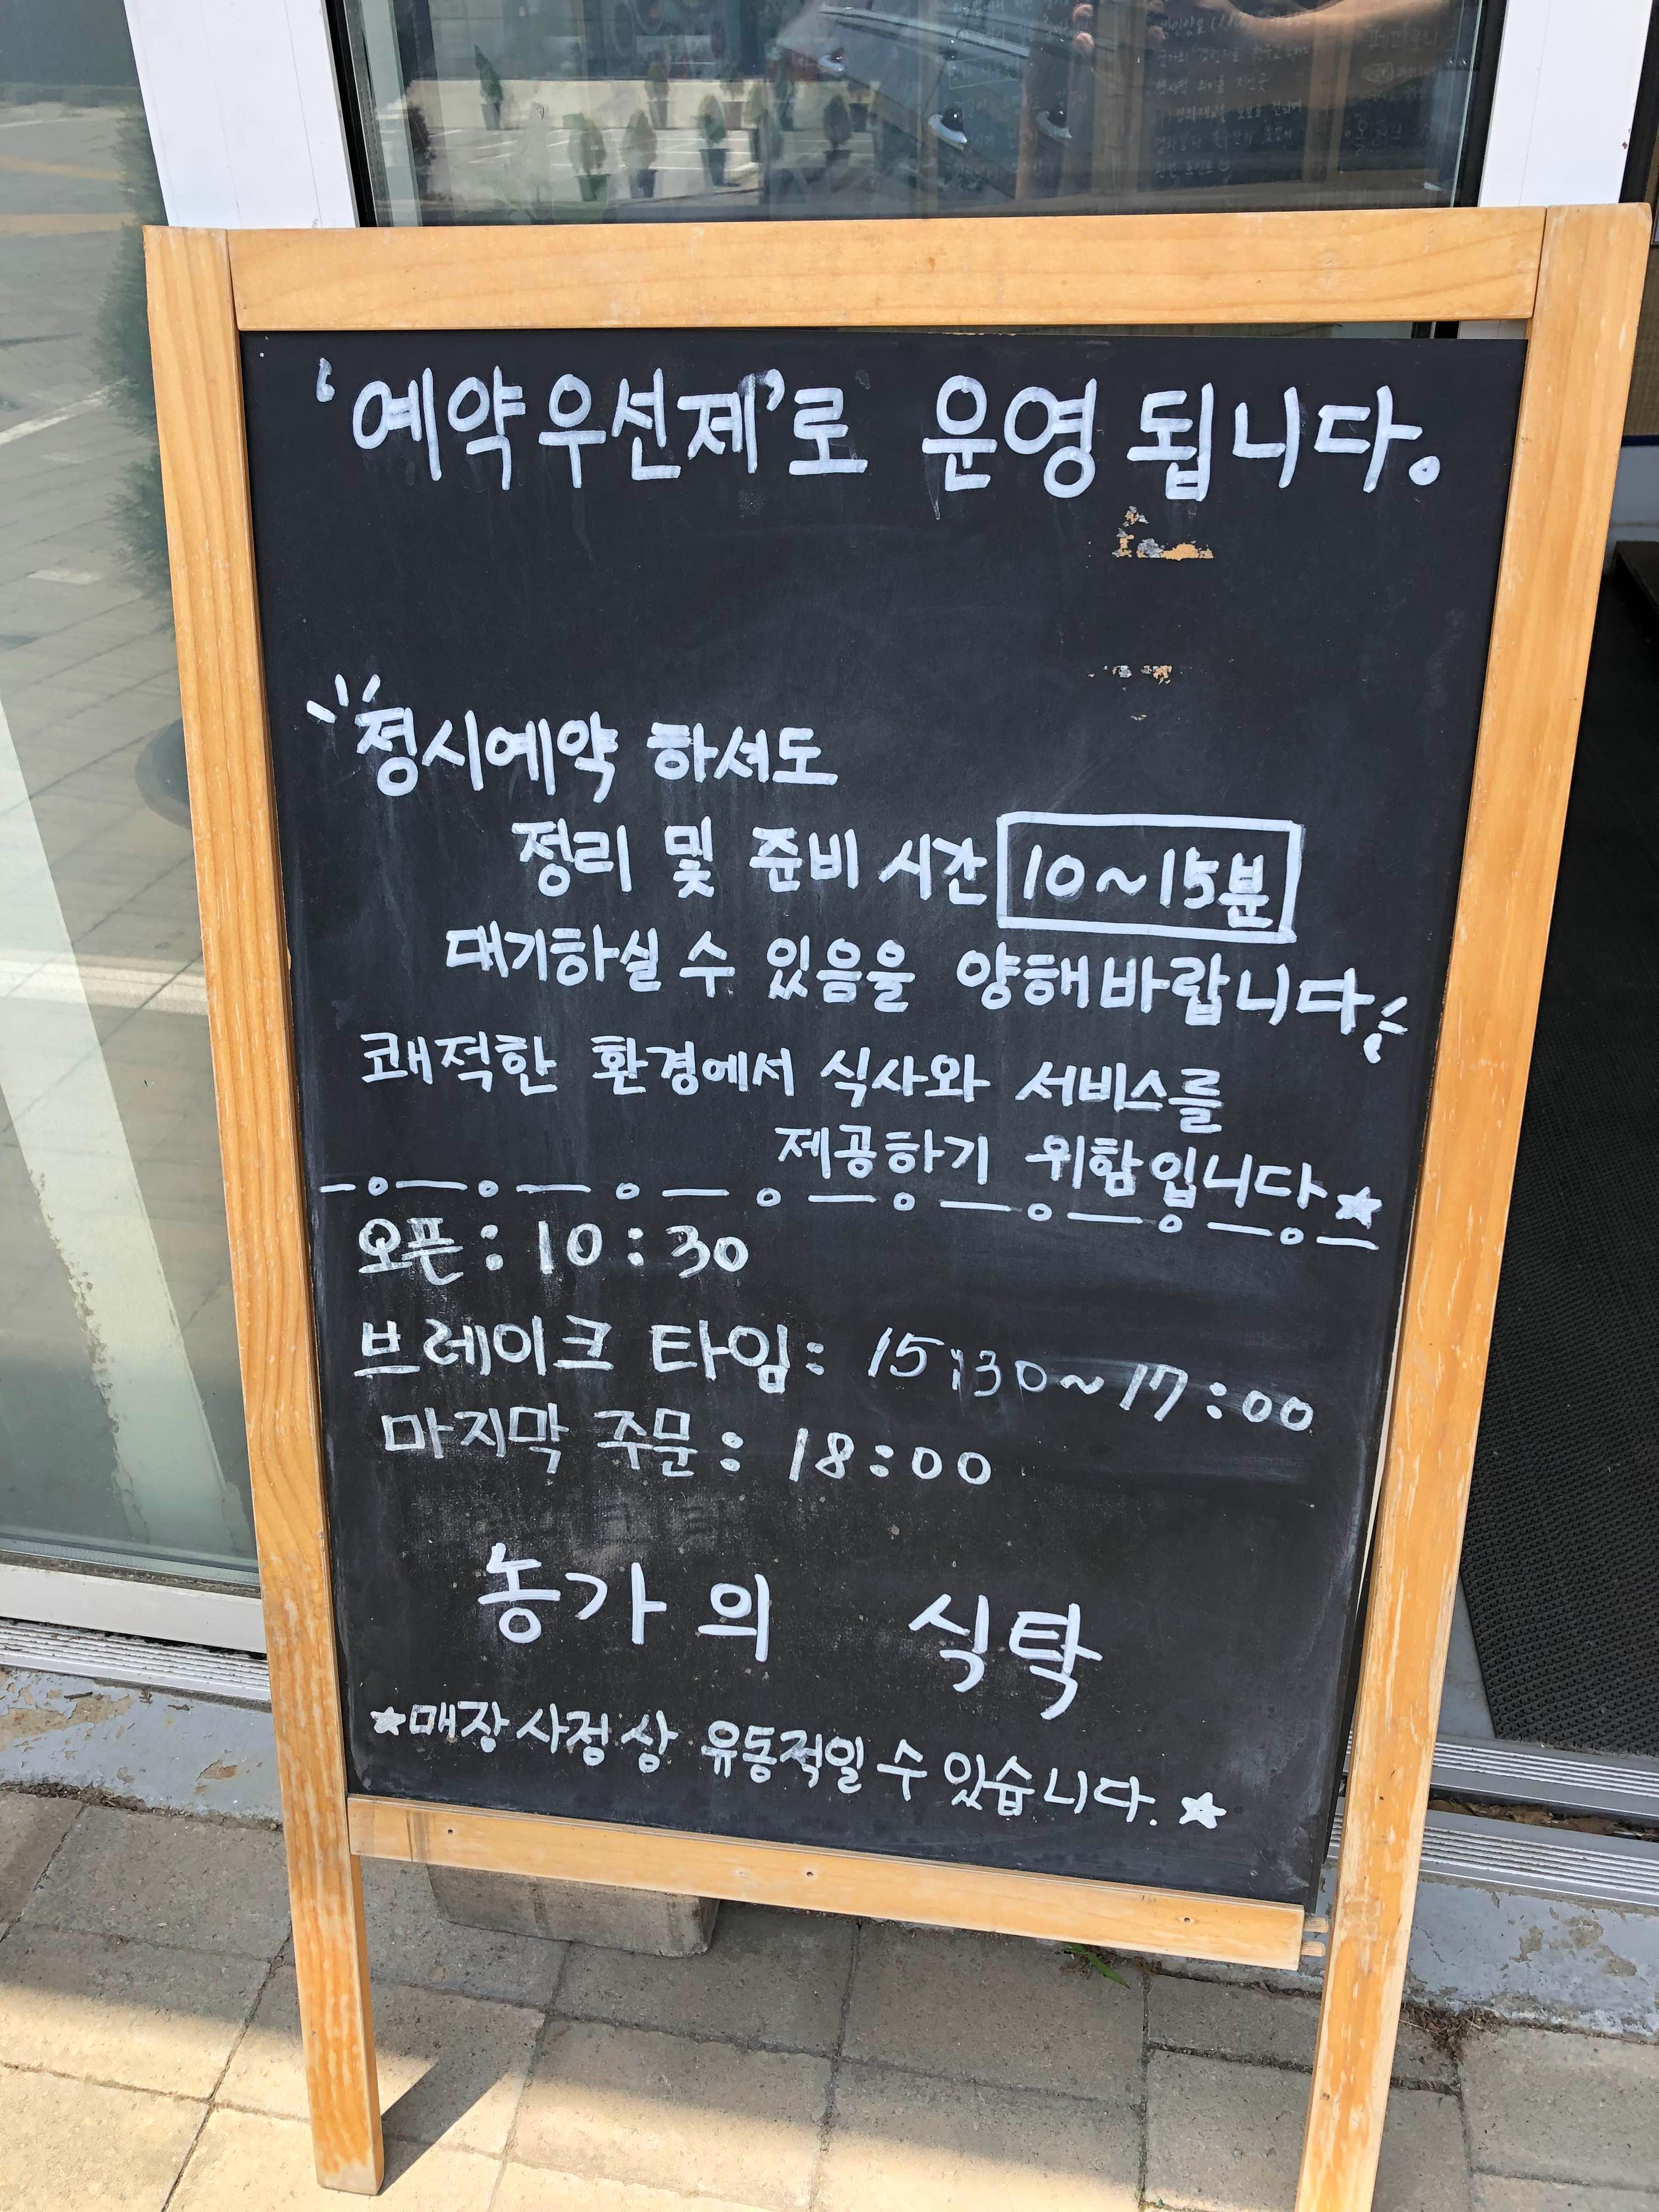 '예약우선제'로 운영됩니다.
정시예약 하셔도
정리 및 준비 시간 10~15분
대기하실 수 있음을 양해바랍니다
쾌적한 환경에서 식사와 서비스를
제공하기 위함입니다★
오픈: 10:30
브레이크 타임: 15:30~17:00
마지막 주문: 18:00
농가의 식탁
★매장사정상 유동적일 수 있습니다.★